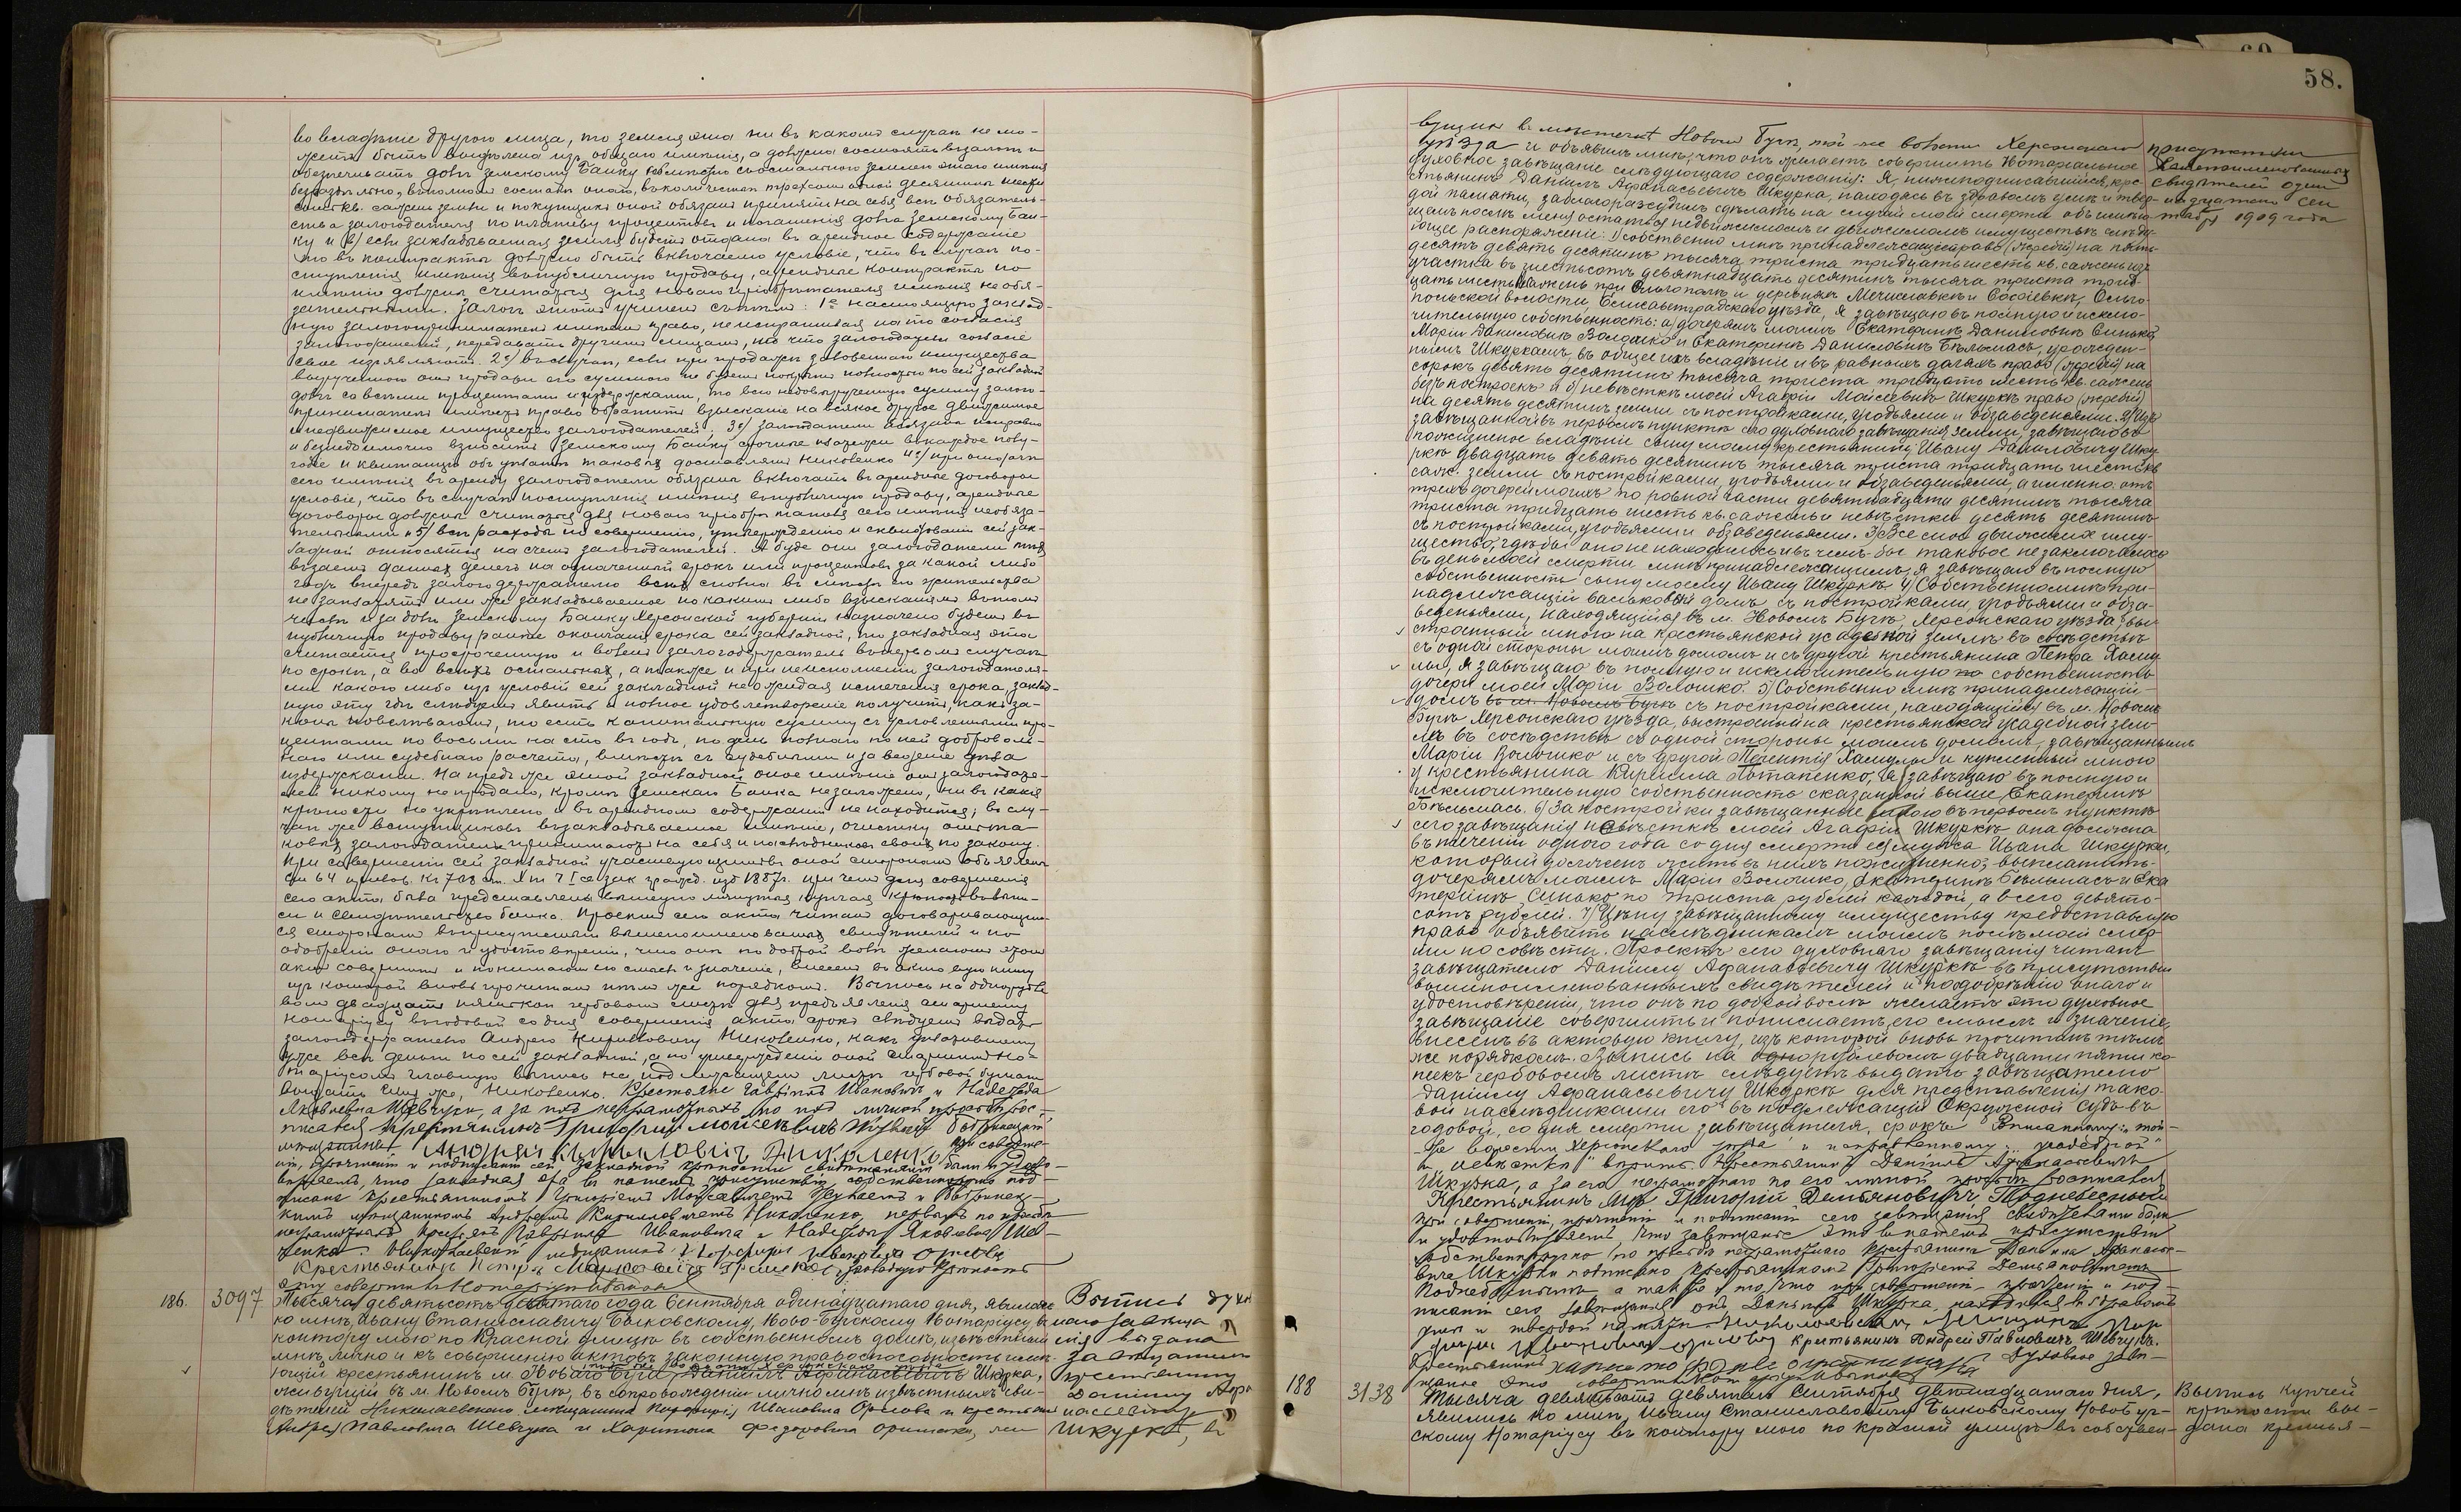 во владѣніе другого лица, то земля эта ни въ какомъ случаѣ не мо-
жетъ быть выдѣлена изъ общаго имѣнія, а должна состоять въ залогѣ и
обезпечивать долгъ Земскому Банку
безраздѣльно, въ полномъ составѣ
земли и покупщикъ оной обязанъ принять на себя всѣ обязатель-
ства залогодателя по платежу процентовъ и погашенія долга Земскому Бан-
ку и если закладываемая земля будетъ отдана въ арендное содержаніе
то въ контрактѣ должно быть включено условіе, что въ случаѣ по-
ступленія имѣнія въ публичную продажу, арендные контракты по
имѣнію должны считаться для новаго пріобрѣтателя имѣнія не обя-
зательными. Залогъ этотъ учиненъ съ тѣмъ: 1е настоящую заклад-
ную залогоприниматель имѣетъ право, не испрашивая на то согласія
залогодателей, передавать другимъ лицамъ, на что залогодатели согласіе
свое изъявляютъ. 2е/ въ случаѣ, если при продажѣ заложеннаго имущества
вырученною отъ продажи его суммою не будетъ покрытъ полностью по сей закладной
долгъ со всѣми процентами и издержками, то всю недовырученную сумму залого-
приниматель имѣетъ право обратить взысканіе на всякое другое движимое
и недвижимое имущество залогодателей. 3е/ залогодатели обязаны исправно
и бездоимочно вносить Земскому Банку срочные платежи въ каждое полу-
годіе и квитанціи объ уплатѣ таковыхъ доставлять Николенко 4е/ при отдачѣ
сего имѣнія въ аренду залогодатели обязаны включать въ арендные договоры
условіе, что въ случаѣ поступленія имѣнія въ публичную продажу, арендные
договоры должны считаться для новаго пріобрѣтателя сего имѣнія необяза-
тельными и 5/ всѣ расходы по совершенію, утвержденію и сей зак-
ладной относятся на счетъ залогодателей. А буде они залогодатели
взаемъ данныхъ денегъ на означенный срокъ или процентовъ за какой либо
годъ впередъ залогодержателю
не заплатятъ или же закладываемое по какимъ либо взысканіямъ въ томъ
числѣ и за долгъ Земскому Банку Херсонской губерніи назначено будетъ въ
публичную продажу ранѣе окончанія срока сей закладной, то закладная эта
считается просроченную и воленъ залогодержатель въ первомъ случаѣ
по срокѣ, а во всѣхъ остальныхъ, а также и при неисполненіи залогодателя-
ми какого либо изъ условій сей закладной не ожидая истеченія срока, заклад-
ную эту гдѣ слѣдуетъ явить и полное удовлетвореніе получить, какъ за-
коны повелѣваютъ, то есть капитальную сумму съ условленными про-
центами по восьми на сто въ годъ, по день полнаго по ней доброволь-
наго или судебнаго расчета, вмѣстѣ съ судебными и за веденіе дѣла
издержками. На предь же этой закладной оное имѣніе отъ залогодате-
лей никому не продано, кромѣ Земскаго Банка незаложено, ни въ какія
крѣпости не укрѣплено и въ арендномъ содержаніи не находится; въ слу-
чаѣ же вступщиковъ въ закладываемое имѣніе, очистку отъ та-
ковыхъ залогодатели принимаютъ на себя и наслѣдниковъ своихъ по закону.
При совершеніи сей закладной участвующимъ въ оной сторонамъ объявлены
при чемъ для совершенія
сего акта была представлена
си и свидѣтельство банка. Проектъ сего акта читанъ договаривающим-
ся сторонамъ въ присутствіи вышепоименованныхъ свидѣтелей и по
одобреніи онаго и удостовѣреніи, что они по доброй волѣ желаютъ этотъ
актъ совершить и понимаютъ его смыслъ и значеніе, внесенъ въ актовую книгу
изъ которой вновь прочитанъ тѣмъ же порядкомъ. Выпись на однорубле-
вомъ двадцати пяти коп. гербовомъ листѣ для предъявленія старшему
нотаріусу въ годовой со дня совершенія акта срокъ слѣдуетъ выдать
залогодержателю Андрею Кирилловичу Николенко, какъ
уже всѣ деньги по сей закладной, а по утвержденіи оной старшимъ но-
таріусомъ главную выпись на подлежащемъ листѣ гербовой бумаги
выдать ему же, Николенко. Крестьяне Гавріилъ Ивановичъ и Надежда
Яковлевна Шевчуки, а за нихъ неграмотныхъ по ихъ личной просьбѣ рос-
писался крестьянинъ Григорій Моисеевичъ
мѣщанинъ Андрей Кирилловичъ Николенко при соверше-
ніи, прочтеніи и подписаніи сей закладной крѣпости свидѣтелями были и удосто-
вѣряемъ, что закладная эта въ нашемъ присутствіи собственноручно под-
писана крестьяниномъ Григоріемъ Моисеевичемъ
кимъ мѣщаниномъ Андреемъ Кирилловичемъ Николенко, первымъ по просьбѣ
неграмотныхъ крестьянъ Гавріила Ивановича и Надежды Яковлевны Шев-
Николаевскій мѣщанинъ Порфирій Ивановичъ Орловъ
крестьянинъ Петръ Марковичъ закладную крѣпость
эту совершилъ Нотаріусъ
186. 3097 Тысяча девятьсотъ девятаго года Сентября одинадцатаго дня, явился
ко мнѣ, Ивану Станиславичу Быковскому, Ново-Бугскому Нотаріусу въ
контору мою по Красной улицѣ въ собственномъ домѣ, извѣстный
мнѣ лично и къ совершенію актовъ законную правоспособность имѣ-
ющій крестьянинъ м. Новаго Буга, Даніилъ Афанасьевичъ Шкурка,
живущій въ м. Новомъ Бугѣ, въ сопровожденіи лично мнѣ извѣстныхъ сви-
дѣтелей Николаевскаго мѣщанина Порфирія Ивановича Орлова и крестьянъ
Андрея Павловича Шевчука и Харитона Федоровича
Выпись дух
наго завѣща
нія выдана
завѣщателю
крестьянину
Даніилу Афа
насьевичу
Шкуркѣ, въ
58.
вущихъ въ мѣстечкѣ Новомъ Бугѣ, той-же волости Херсонскаго
уѣзда и объявилъ мнѣ, что онъ желаетъ совершить Нотаріальное
духовное завѣщаніе слѣдующаго содержанія: Я, нижеподписавшійся, кре-
стьянинъ Даніилъ Афанасьевичъ Шкурка, находясь въ здравомъ умѣ и твер-
дой памяти, заблагоразсудилъ сдѣлать на случай моей смерти объ имѣю-
щемъ послѣ меня остаться недвижимомъ и движимомъ имуществѣ слѣду-
ющее распоряженіе: 1) собственно мнѣ принадлежащее право (жеребій) на пять-
десятъ девять десятинъ тысяча триста тридцать шесть кв. сажень изъ
участка въ шестьсотъ девятнадцать десятинъ тысяча триста трид-
цать шесть кв. сажень при Ольгополѣ и деревняхъ Мечиславкѣ и Софіевкѣ, Ольго-
польской волости, Елисаветградскаго уѣзда, я завѣщаю въ полную и исклю-
чительную собственность: а) дочерямъ моимъ Екатеринѣ Даниловнѣ Синько,
Маріи Даниловнѣ Волошко и Екатеринѣ Даниловнѣ Бѣльмасъ, урожден-
нымъ Шкуркамъ, въ общее ихъ владѣніе и въ равныхъ доляхъ право (жеребій) на
сорокъ девять десятинъ тысяча триста тридцать шесть кв. сажень
безъ построекъ и б) невѣсткѣ моей Агафіи Моисеевнѣ Шкуркѣ право (жеребій)
на десять десятинъ земли съ постройками, угодьями и обзаведеніями. 2) Изъ
завѣщанной въ первомъ пунктѣ сего духовнаго завѣщанія земли завѣщаю въ
пожизненное владѣніе сыну моему крестьянину Ивану Даниловичу Шку-
ркѣ двадцать девять десятинъ тысяча триста тридцать шесть кв.
саж. земли съ постройками, угодьями и обзаведеніями, а именно: отъ
трехъ дочерей моихъ по ровной части девятнадцать десятинъ тысяча
триста тридцать шесть кв. сажень и невѣстки десять десятинъ
съ постройками, угодьями и обзаведеніями. 3) Все мое движимое иму-
щество, гдѣ бы оно не находилось и въ чемъ-бы таковое не заключалось
въ день моей смерти мнѣ принадлежащимъ, я завѣщаю въ полную
собственность сыну моему Ивану Шкуркѣ. 4) Собственно мнѣ при-
надлежащій вальковый домъ съ постройками, угодьями и обза-
веденіями, находящійся въ м. Новомъ Бугѣ, Херсонскаго уѣзда, вы-
строенный мною на крестьянской усадебной землѣ въ сосѣдствѣ
съ одной стороны моимъ домомъ и съ другой крестьянина Петра Хаму-
лы, я завѣщаю въ полную и исключительную собственность
дочери моей Маріи Волошко. 5) Собственно мнѣ принадлежащій
домъ въ м. Новомъ Бугѣ съ постройками, находящійся въ м. Новомъ
Бугѣ Херсонскаго уѣзда, выстроенный на крестьянской усадебной зем-
лѣ въ сосѣдствѣ съ одной стороны моимъ домомъ, завѣщаннымъ
Маріи Волошко и съ другой Терентія Хамулы и купленный мною
у крестьянина Кирилла Потапенко, я завѣщаю въ полную и
исключительную собственность сказанной выше, Екатеринѣ
Бѣльмасъ. 6) За постройки завѣщанные мною въ первомъ пунктѣ
сего завѣщанія невѣсткѣ моей Агафіи Шкуркѣ она должна
въ теченіи одного года со дня смерти ея мужа Ивана Шкурки,
который долженъ жить въ нихъ пожизненно, выплатить
дочерямъ моимъ Маріи Волошко, Екатеринѣ Бѣльмасъ и Ека-
теринѣ Синько по триста рублей каждой, а всего девять-
сотъ рублей. 7) Цѣну завѣщанному имуществу предоставляю
право объявить наслѣдникамъ моимъ послѣ моей смер-
ти по совѣсти. Проектъ сего духовнаго завѣщанія читанъ
завѣщателю Даніилу Афанасьевичу Шкуркѣ въ присутствіи
вышепоименованныхъ свидѣтелей и по одобреніи онаго и
удостовѣреніи, что онъ по доброй волѣ желаетъ это духовное
завѣщаніе совершить и понимаетъ его смыслъ и значеніе,
внесенъ въ актовую книгу, изъ которой вновь прочитанъ тѣмъ
же порядкомъ. Выпись на однорублевомъ двадцати пяти ко-
пѣекъ гербовомъ листѣ слѣдуетъ выдать завѣщателю
Даніилу Афанасьевичу Шкуркѣ для представленія тако-
вой наслѣдниками его въ подлежащій Окружной Судъ въ
годовой, со дня смерти завѣщателя, срокъ. Вписанному: „той-
же волости Херсонскаго уѣзда" и поправленному: „усадебной"
и „невѣстки" вѣрить. Крестьянинъ Даніилъ Афанасьевичъ
Шкурка, а за его неграмотнаго по его личной просьбѣ росписался
крестьянинъ Григорій Демьяновичъ Поднебесный
При совершеніи, прочтеніи и подписаніи сего завѣщанія свидѣтелями были
и удостовѣряемъ, что завѣщаніе это въ нашемъ присутствіи
собственноручно по просьбѣ неграмотнаго крестьянина Даніила Афанась-
вича Шкурки подписано крестьяниномъ Григоріемъ Демьяновичемъ
Поднебеснымъ, а также и то, что при совершеніи, прочтеніи и под-
писаніи сего завѣщанія онъ, Даніилъ Шкурка, находился въ здравомъ
умѣ и твердой памяти. Николаевскій мѣщанинъ Пор-
фирій Ивановичъ Орловъ крестьянинъ Андрей Павловичъ Шевчукъ.
крестьянинъ Духовное завѣ-
щаніе это совершилъ Нотаріусъ
присутствіи
вышепоименованныхъ
свидѣтелей один
надцатаго Сен
тября 1909 года
188 3138 Тысяча девятьсотъ девятаго Сентября двѣнадцатаго дня,
явились ко мнѣ, Ивану Станиславовичу Быковскому Новобуг-
скому Нотаріусу въ контору мою по Красной улицѣ въ собствен-
Выпись купчей
крѣпости вы-
дана крестья-